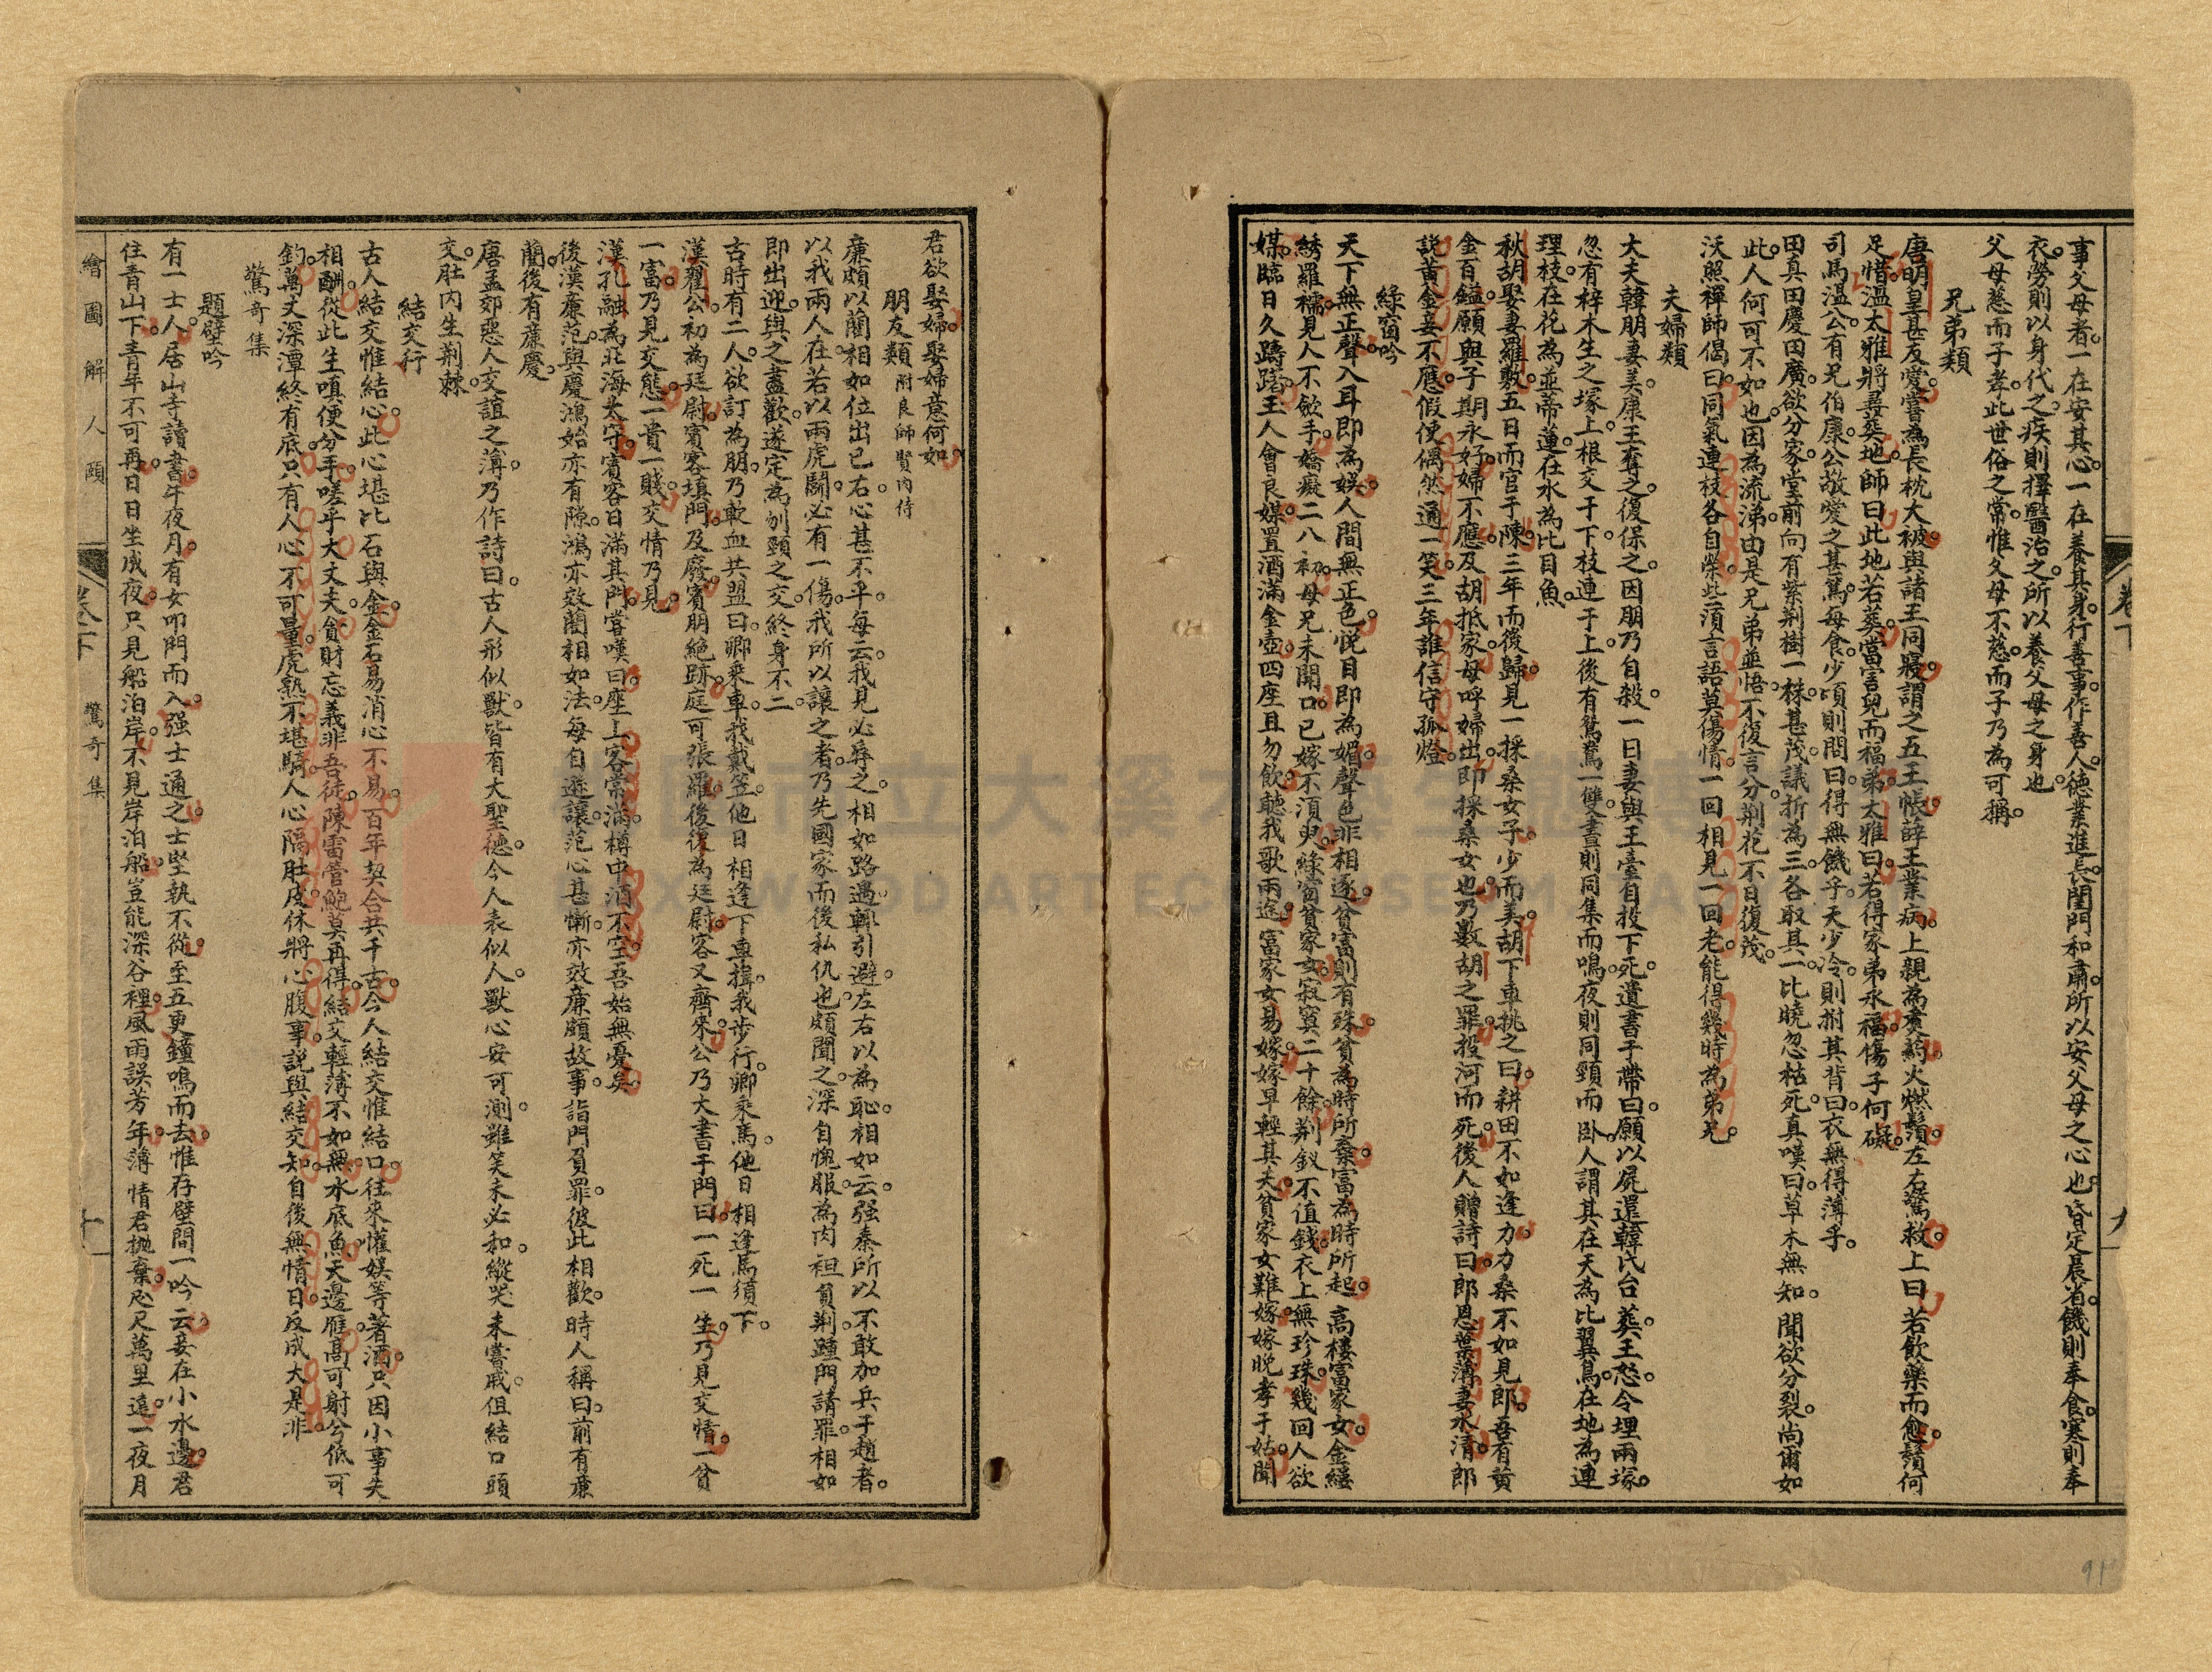 事父母者。一在安其心。一在養其身。行善事。作善人。德業進長。閨門和肅。所以安父母之心也。昏定晨省。饑則奉食。寒則奉
衣。勞則以身代之。疾則擇醫治之。所以養父母之身也。
父母慈而子孝。此世俗之常。惟父母不慈。而子乃為可稱。
兄弟類
唐明皇甚友愛。嘗為長枕大被。與諸王同寢。謂之五王帳。薛王業病。上親為煑葯。火燃鬚。左右驚救。上曰。若飲藥而愈。鬚何
足惜。溫太雅將募葬。地師曰。此地若葬。當害兄而福弟。太雅曰。若得家弟永福。傷子何礙。
司馬溫公。有兄伯康。公敬愛之甚篤。每食。少頃則問曰。得無饑乎。天少冷。則拊其背曰。衣無得薄乎。
田真田慶田廣。欲分家。堂前向有紫荆樹一株。甚茂。議折為三。各取其一。比曉忽枯死。真嘆曰。草木無知。聞欲分裂。尚爾如
此。人何可不如也。因為流涕。由是兄弟並悟。不復言分。荆花不日復茂。
沃照禪師偈曰。同氣連枝各自榮。些須言語莫傷情。一回相見一回老。能得幾時為弟兄。
夫婦類
大夫韓朋妻美。康王奪之。復保之。因朋乃自殺。一日妻與王臺。自投下死。遺書于帶曰。願以屍還韓氏合葬。王怒。令埋兩塚。
忽有梓木生之。塚上根交于下。枝連于上。後有鴛鴦一雙。晝則同集而鳴。夜則同頸而卧。人謂其在天為比翼鳥。在地為連
理枝。在花為並蒂蓮。在水為比目魚。
秋胡娶妻羅敷。五日而官于陳。三年而後歸。見一採桑女子。少而美。胡下車挑之曰。耕田不如逢力。力桑不如見郎。吾有黄
金百鎰。願與子期永好。婦不應。及胡抵家。母呼婦出。即採桑女也。乃數胡之罪。投河而死。後人贈詩曰。郎恩葉薄妻氷清。郎
説黄金妾不應。假使偶然通一笑。三年誰信守孤燈。
綠窗吟
天下無正聲。入耳即為娱。人間無正色。悅目即為媚。聲色非相逐。貧富則有殊。貧為時所棄。富為時所起。高樓富家女。金縷
綉羅襦。見人不斂手。嬌癡二八初。母兄未開口。已嫁不須臾。綠窗貧家女。寂寞二十餘。荆釵不值錢。衣上無珍珠。幾回人欲
媒。臨日久躊躇。王人會良媒。置酒滿金壺。四座且勿飲。聽我歌兩途。富家女易嫁。嫁早輕其夫。貧家女難嫁。嫁晚孝于姑。聞
卷下
九
91
君欲娶婦。娶婦意何如。
朋友類 附良師賢内侍
廉頗以藺相如位出已右。心甚不平。每云我見必辱之。相如路遇。輙引避。左右以為恥。相如云。强秦所以不敢加兵于趙者。
以我兩人在。若以兩虎鬭。必有一傷。我所以讓之者。乃先國家而後私仇也。頗聞之。深自愧服。為肉袒負荆。踵門請罪。相如
即出迎。與之盡歡。遂定為刎頸之交。終身不二
古時有二人。欲訂為朋。乃歃血共盟曰。卿乘車。我戴笠。他日相逢下車揖。我步行。卿乘馬。他日相逢馬須下。
漢翟公。初為廷尉。賓客填門。及廢。賓朋絶跡。庭可張羅。後復為廷尉。客又齊來。公乃大書于門曰。一死一生。乃見交情。一貧
一富。乃見交態。一貴一賤。交情乃見。
漢孔融為北海太守。賓客日滿其門。嘗嘆曰。座上客常滿。樽中酒不空。吾始無憂矣。
後漢廉范。與慶鴻始亦有隙。鴻亦效藺相如法。每自遜讓。范心甚慚。亦效廉頗故事。詣門負罪。彼此相歡。時人稱曰。前有廉
藺。後有廉慶。
唐孟郊惡人交誼之薄。乃作詩曰。古人形似獸。皆有大聖德。今人表似人。獸心安可測。雖笑未必和。縱哭未嘗戚。但結口頭
交。肚内生荆棘。
結交行
古人結交惟結心。此心堪比石與金。金石易消心不易。百年契合共千古。今人結交惟結口。往來懽娱等著酒。只因小事失
相酬。從此生嗔便分手。嗟乎大丈夫。貧財忘義非吾徒。陳雷管鮑莫再得。結交輕薄不如無。水底魚。天邊雁。高可射兮低可
釣。萬丈深潭終有底。只有人心不可量。虎熟不堪騎。人心隔肚皮。休將心腹事。説與結交知。自後無情日。反成大是非。
驚奇集
題壁吟
有一士人。居山寺讀書。午夜月。有女叩門而入。强士通之。士堅執不從。至五更。鐘鳴而去。惟存壁間一吟云。妾在小水邊。君
住青山下。青年不可再。日日坐成夜。只見船泊岸。不見岸泊船。豈能深谷裡。風雨誤芳年。薄情君抛棄。咫尺萬里遠。一夜月
繪圖解人頤
卷下
驚奇集
十